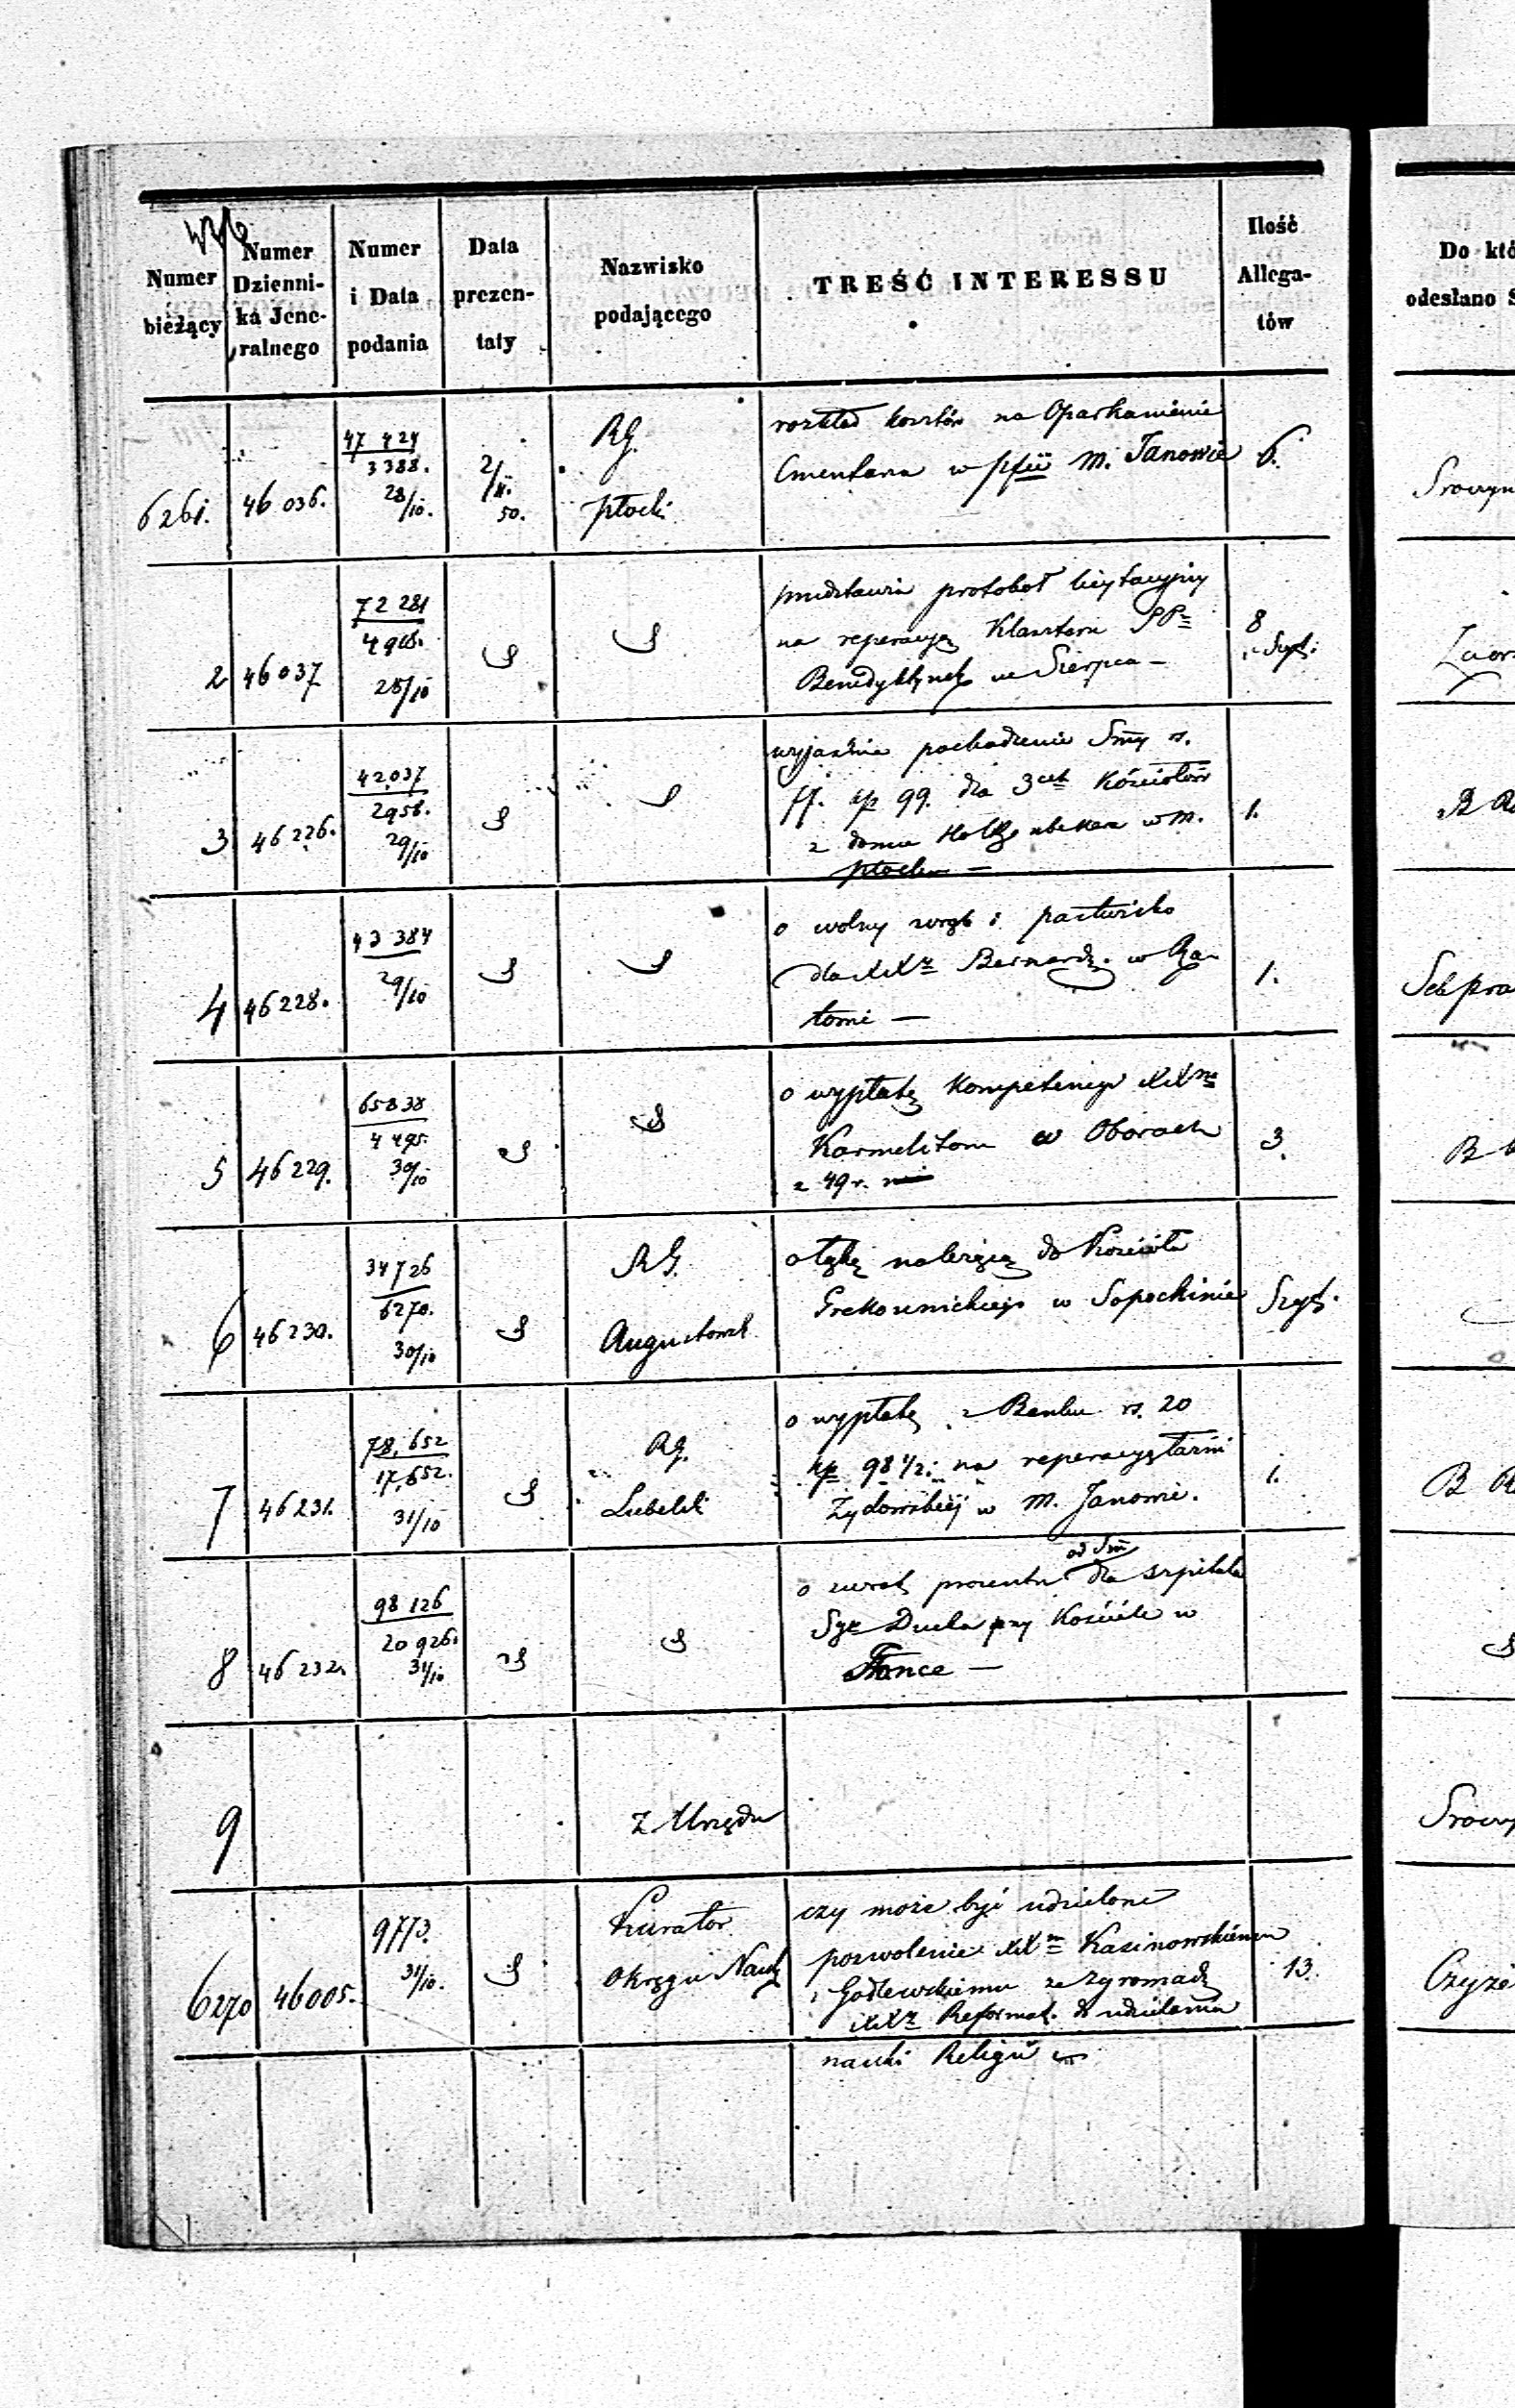 Numer
bieżący
Numer
Dzienni-
ka Jene-
ralnego
Numer
i Data
podania
Data
prezen-
taty
Nazwisko
podającego
TREŚĆ INTERESSU
Ilość
Allega-
tów
Do któ
odesłano S
6261. 46 036.
47 424
3388.
28/10.
2/11.
50.
RG.
płocki
rozkład kosztów na Oparkanienie
Cmentarza w m. Janowie
6.
2 46 037
72 281
4918.
28/10
przedstawia protokoł licytacyjny
na reperacyą Klasztoru PP
Benedyktynek w Sierpcu —
8
Szyt.
3 46 226.
42 037
2958.
29/10
wyjaśnia pochodzenie Smy rs.
kp 99. dla 3ech Kościołów
z domu w m.
płocku —
1.
4 46 228.
43 384
29/10
o wolny wrąb i pastwisko
dla XX Bernardy. w Ra-
towie —
1.
5 46 229.
65838
4 495.
30/10
o wypłatę Kompetencyi XX
Karmelitom w Oborach
z 49 r.
3.
6 46 230.
34 726
6270.
30/10
RG.
Augustowsk
o łąkę należącą do Kościoła
Grekounickiego w Sopockinie
Szyt.
7 46 231.
78,652
17,652.
31/10
RG.
Lubelski
o wypłatę z Banku rs. 20
kp 98 1/2 na reperacyą łaźni
Żydowskiej w m. Janowie.
1.
B
8 46 232.
98 126
20 926.
31/10
od Sm
o zwrot procentu dla szpitala
Sgo Ducha przy Kościele w
9
Z Urzędu
6270 46005.
9773.
31/10.
Kurator
Okręgu Nauk
czy może być udzielone
pozwolenie XX Kasinowskiemu
i Godlewskiemu ze zgromadz
XX Reformat. do udzielania
nauki Religii
13.
Czyże